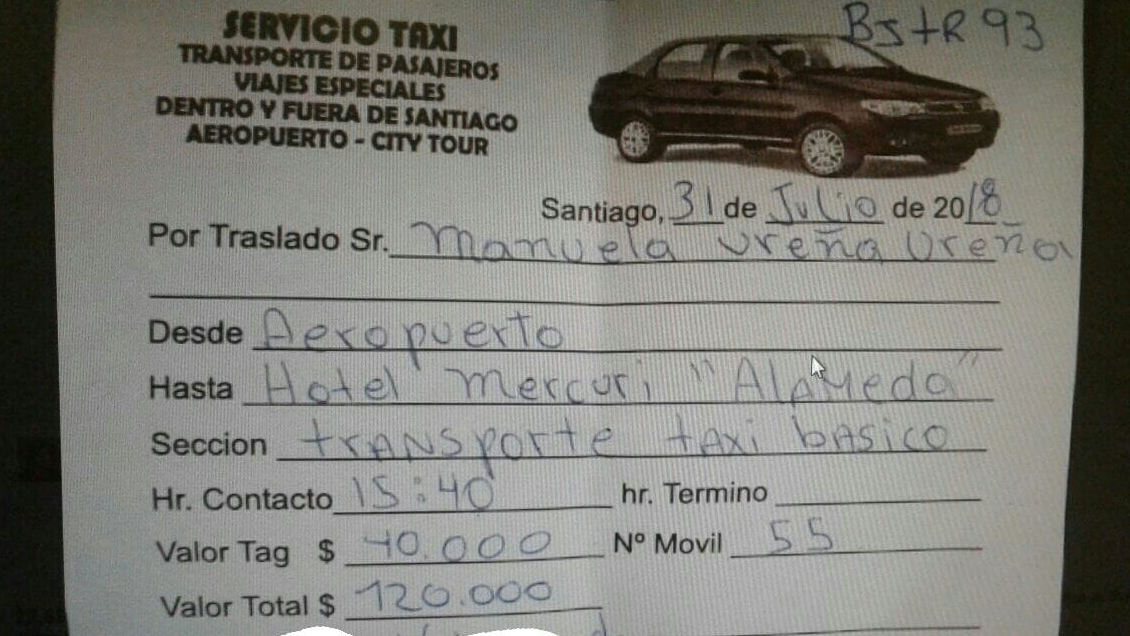 SERVICIO TAXI
TRANSPORTE DE PASAJEROS
VIAJES ESPECIALES
DENTRO Y FUERA DE SANTIAGO
AEROPUERTO - CITY TOUR
BJtR 93
Santiago, 31 de Julio de 2018
Por Traslado Sr. Manuela Ureña Ureña
Desde Aeropuerto
Hasta Hotel Mercuri "Alameda"
Seccion transporte taxi basico
Hr. Contacto 15:40 hr. Termino
Valor Tag $ 40.000 Nº Movil 55
Valor Total $ 120.000